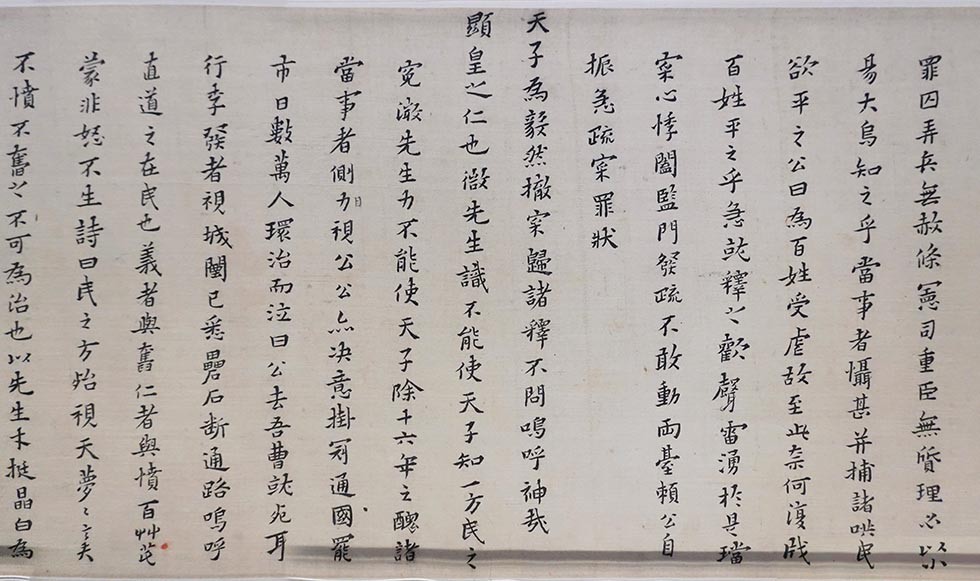 罪囚弄兵無赦條憲司重臣無質理必以
易大烏知之乎當事者懾甚并捕諸哄民
欲平之公曰為百姓受虐故至此奈何復戕
百姓平之乎急就釋之歡聲雷湧於是璫
寀心悸闔監門發疏不敢動兩臺賴公自
振急疏寀罪狀
天子為毅然撤寀歸諸釋不問嗚呼神哉
顯皇之仁也微先生識不能使天子知一方民之
冤微先生力不能使天子除十六年之醜諸
當事者側目視公公亦決意掛冠通國罷
市日數萬人環治而泣曰公去吾曹就死耳
行李發者視城闉已悉壘石斷通路嗚呼
直道之在民也義者與奮仁者與憤百艸芘
蒙非怒不生詩曰民之方殆視天夢夢矣
不憤不奮之不可為治也以先生未挺晶白為